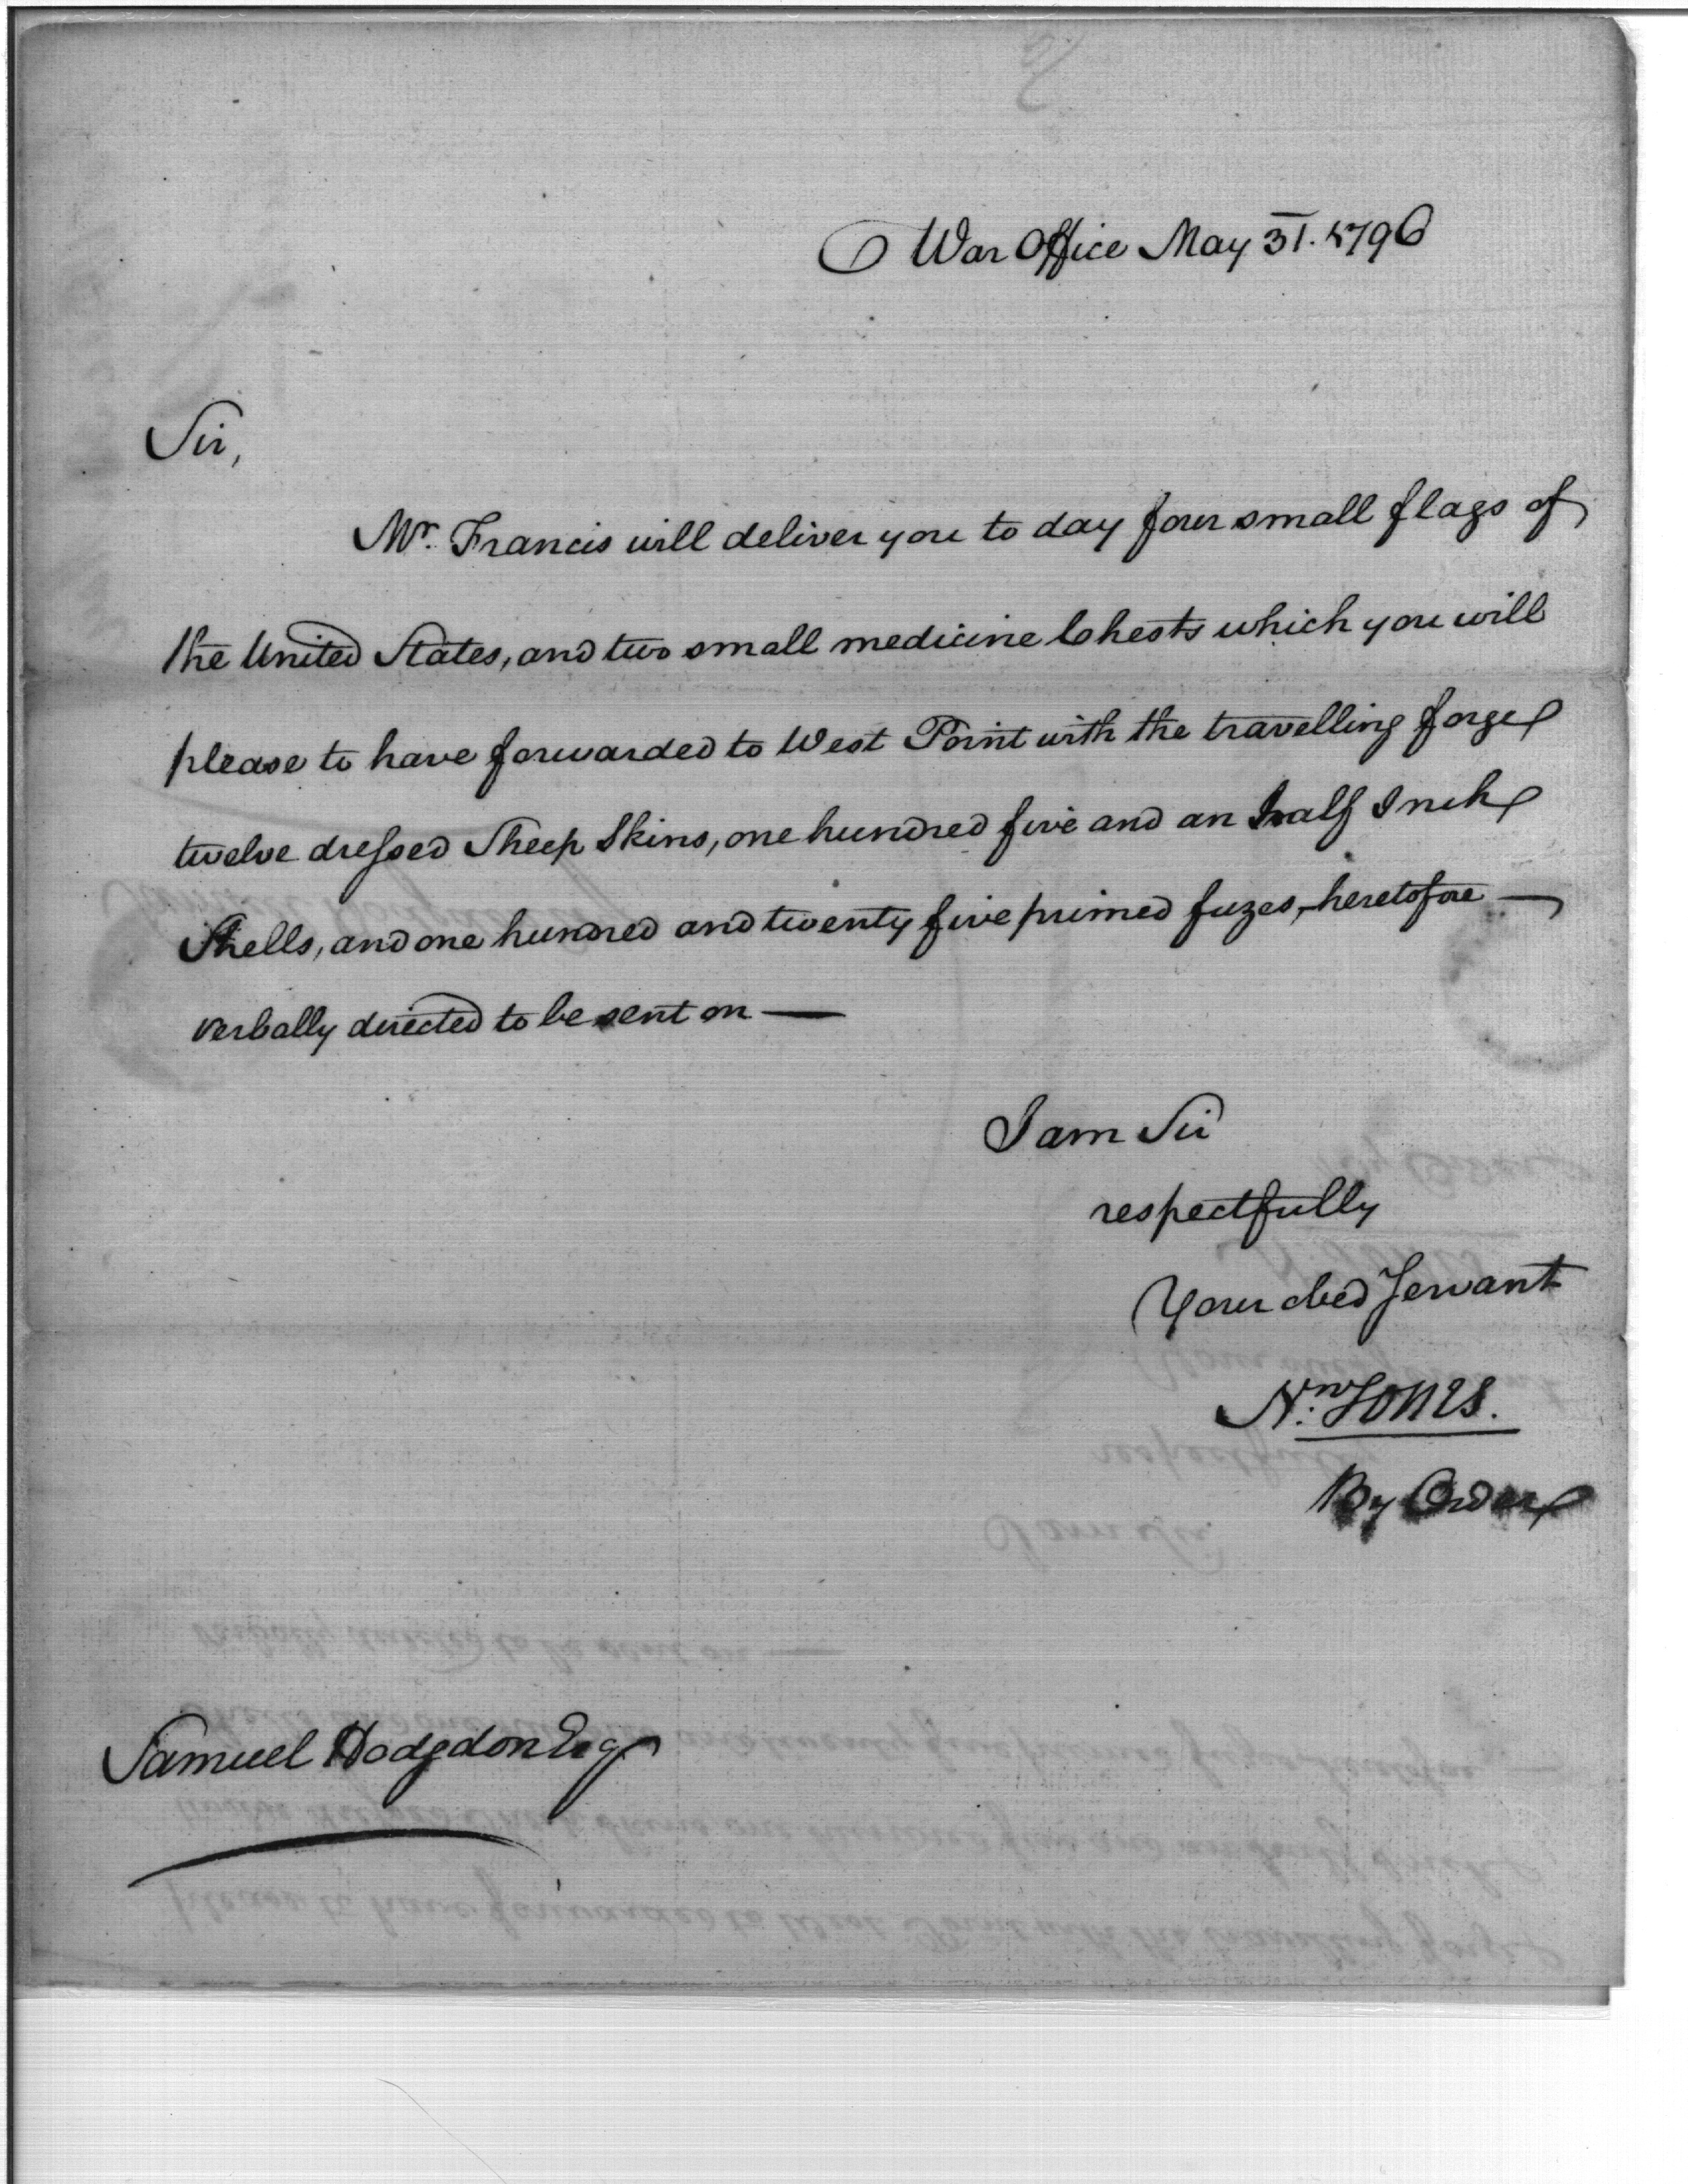 War Office May 31. 1796
Sir,
Mr. Francis will deliver you to day four small flags of
the United States, and two small medicine Chests which you will
please to have forwarded to West Point with the travelling forge
twelve dressed Sheep Skins, one hundred five and an half Inch
Shells, and one hundred and twenty five primed fuzes, heretofore —
verbally directed to be sent on —
I am Sir
respectfully
Your obed Servant
Nn. Jones.
By Order
Samuel Hodgdon Esqr